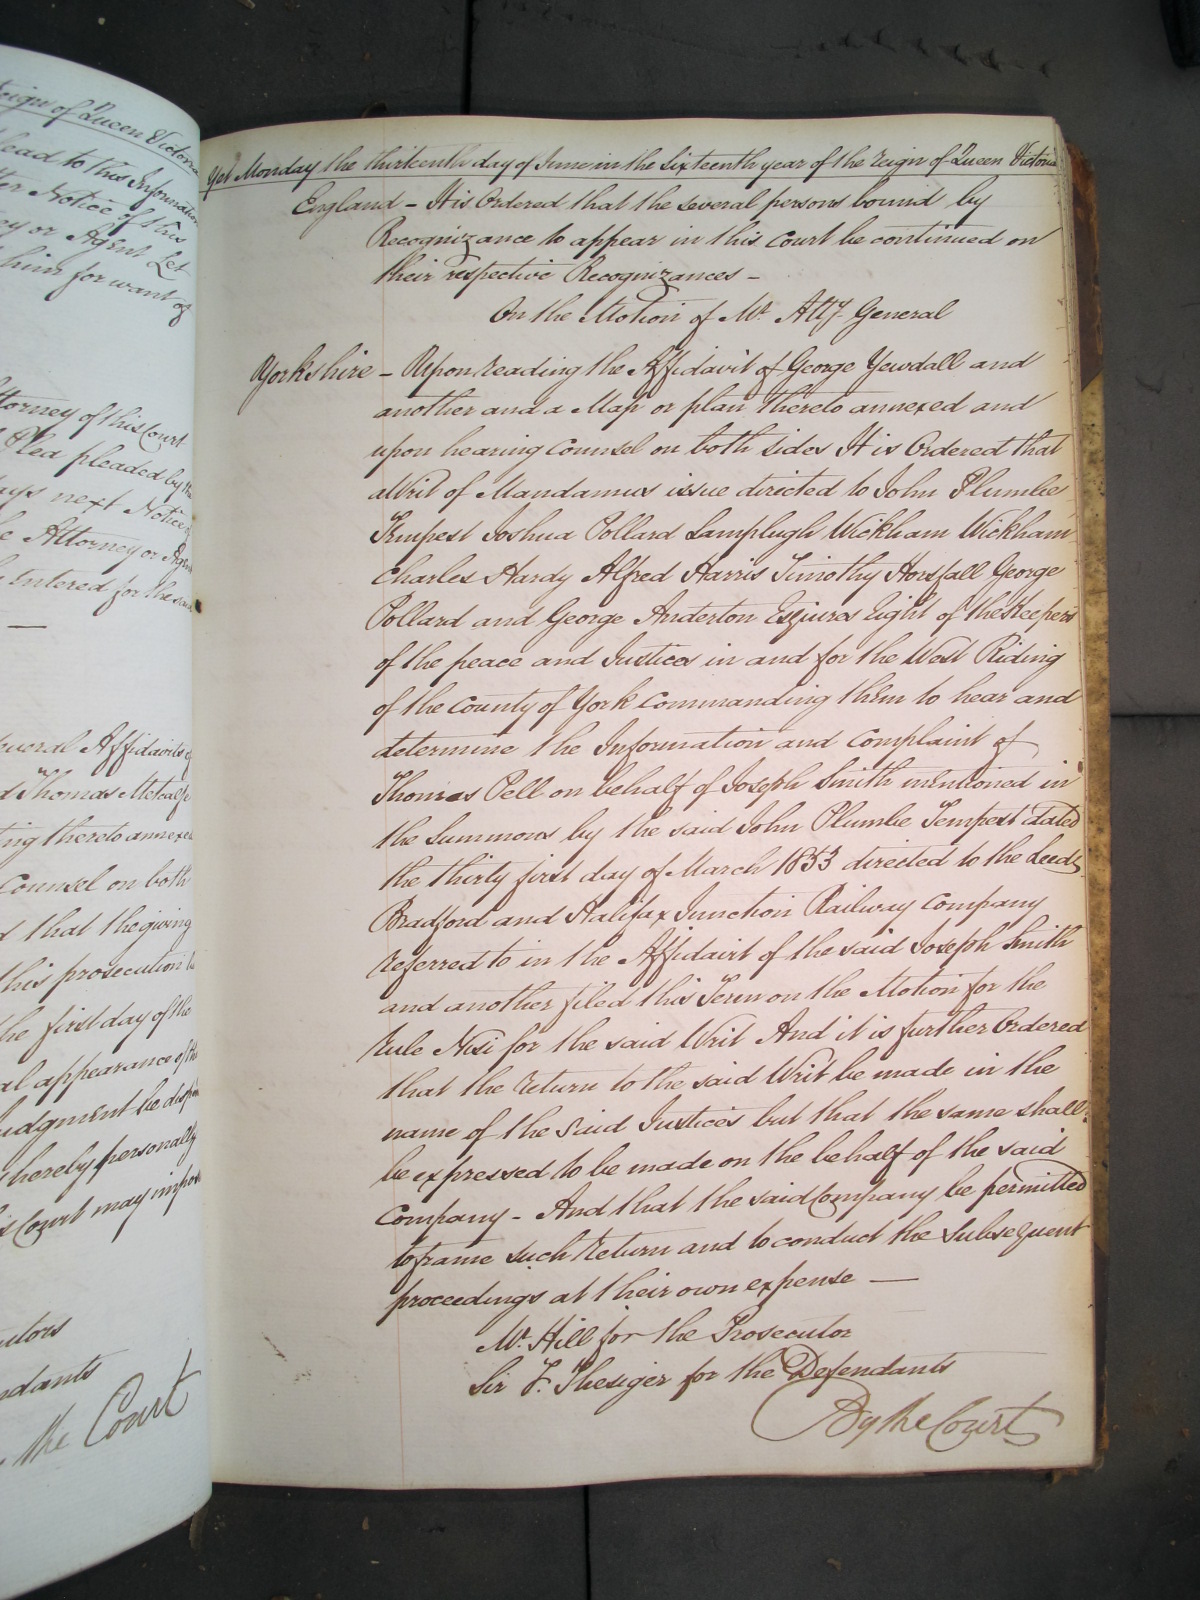 Reign of Queen Victoria
lead to this Information
ter Notice of this
ey or Agent Let
him for want of
ttorney of this Court
Plea pleaded by the
ays next Notice
e Attorney or Agent
Entered for the said
everal Affidavits of
d Thomas Metcalfe
ing thereto annexed
Counsel on both
d that the giving
this prosecution
the first day of the
al appearance of the
udgment be
thereby personally
is Court may impose
utors
ndants
the Court
Yet Monday the thirteenth day of June in the Sixteenth year of the reign of Queen Victoria
England – It is Ordered that the several persons bound by
Recognizance to appear in this Court be continued on
their respective Recognizances –
On the Motion of Mr. Atty. General
Yorkshire – Upon reading the Affidavit of George Yewdall and
another and a Map or plan thereto annexed and
upon hearing Counsel on both sides It is Ordered that
a Writ of Mandamus issue directed to John Plumbe
Tempest Joshua Pollard Lamplugh Wickham Wickham
Charles Hardy Alfred Harris Timothy Horsfall George
Pollard and George Anderton Esquires Eight of the Keepers
of the peace and Justices in and for the West Riding
of the County of York Commanding them to hear and
determine the Information and Complaint of
Thomas Pell on behalf of Joseph Smith mentioned in
the Summons by the said John Plumbe Tempest dated
the thirty first day of March 1853 directed to the Leeds
Bradford and Halifax Junction Railway Company
referred to in the Affidavit of the said Joseph Smith
and another filed this Term on the Motion for the
Rule Nisi for the said Writ And it is further Ordered
that the return to the said Writ be made in the
name of the said Justices but that the same shall
be expressed to be made on the behalf of the said
Company – And that the said Company be permitted
to frame such Return and to conduct the subsequent
proceedings at their own expense —
Mr. Hill for the Prosecutor
Sir F. Thesiger for the Defendants
By the Court